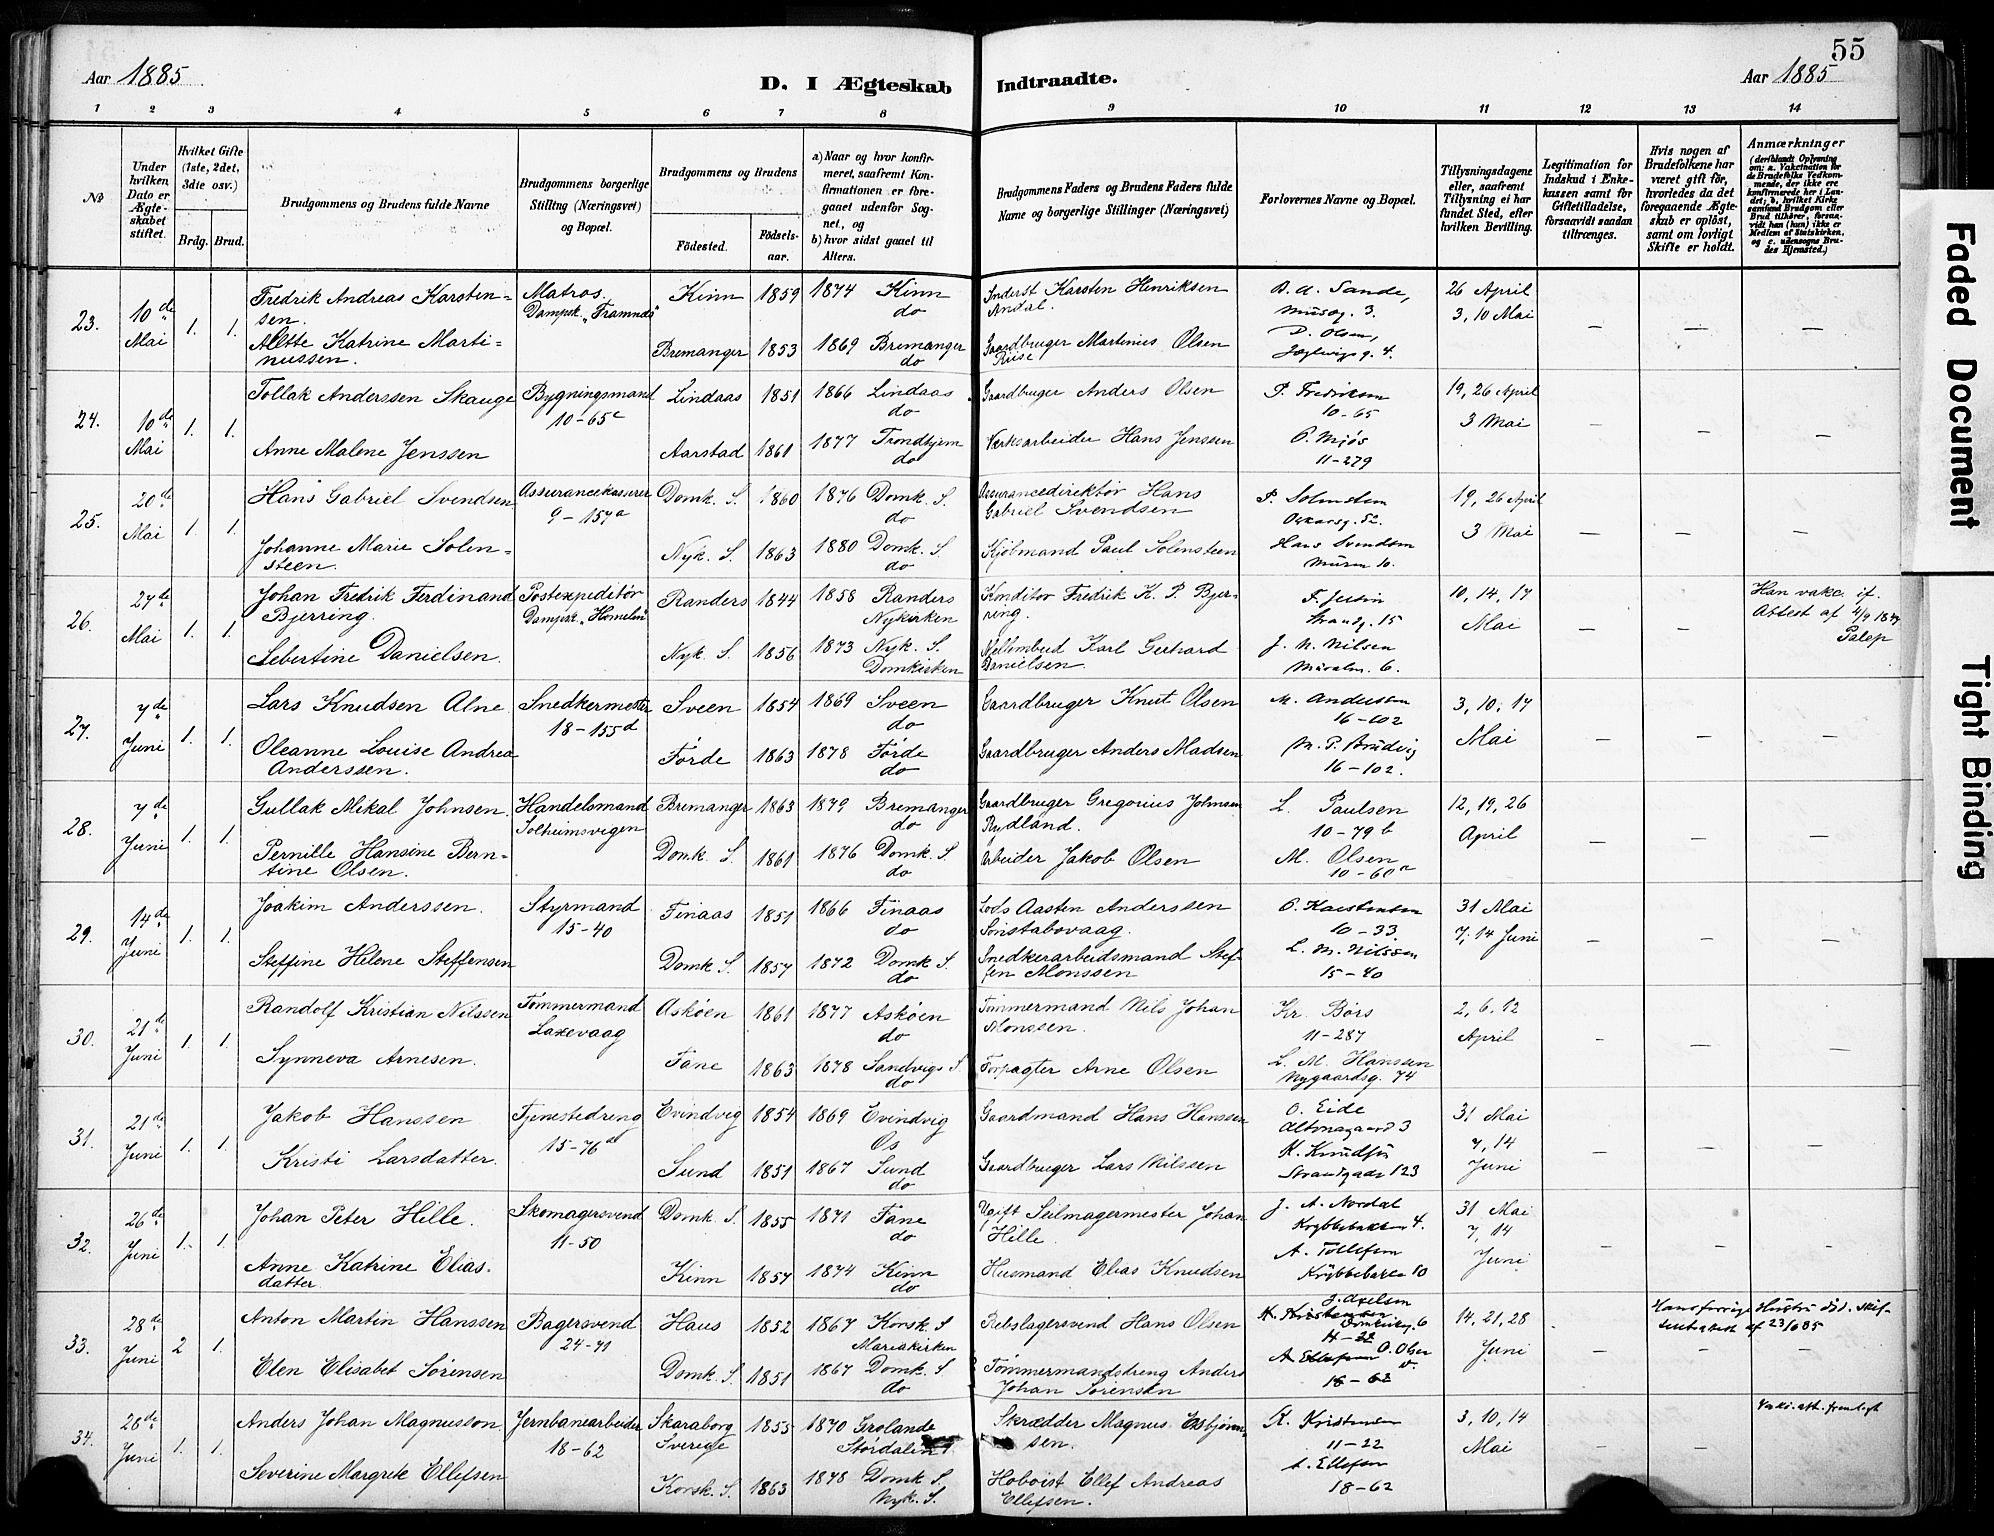 55
Aar 1885
D. I Ægteskab Indtraadte.
Aar 1885
1 2 3 4 5 6 7 8 9 10 11 12 13 14
No
Under hvilken Dato er Ægteskabet stiftet.
Hvilket Gifte (1ste, 2det, 3die osv.)
Brdg. Brud.
Brudgommens og Brudens fulde Navne
Brudgommens borgerlige Stilling (Næringsvei) og Bopæl.
Brudgommens og Brudens
Fødested. Fødselsaar.
a) Naar og hvor konfirmeret, saafremt Konfirmationen er foregaaet udenfor Sognet, og
b) hvor sidst gaaet til Alters.
Brudgommens Faders og Brudens Faders fulde Navne og borgerlige Stillinger (Næringsvei)
Forlovernes Navne og Bopæl.
Tillysningsdagene eller, saafremt Tillysning ei har fundet Sted, efter hvilken Bevilling.
Legitimation for Indskud i Enkekassen samt for Giftetilladelse, forsaavidt saadan tiltrænges.
Hvis nogen af Brudefolkene har været gift før, hvorledes da det foregaaende Ægteskab er opløst, samt om lovligt Skifte er holdt.
Anmærkninger
(deriblandt Oplysning om: a. Vakcination for de Brudefolks Vedkommende, der ikke ere konfirmerede her i Landet; b. hvilket Kirkesamfund Brudgom eller Brud tilhører, forsaavidt han (hun) ikke er Medlem af Statskirken, og c. udensogns Brudes Hjemsted.)
23. 10de Mai 1. 1.
Fredrik Andreas Karstensen.
Matros, Dampsk. "Framnæs"
Kinn 1859 1874 Kinn do
Karsten Henriksen
26 April 3, 10 Mai
Alette Katrine Martinussen.
Bremanger 1853 1869 Bremanger do
Gaardbruger Martinus Olsen Riise
D. Olsen,
24. 10de Mai 1. 1.
Tollak Anderssen Skauge
Bygningsmand 10-65c
Lindaas 1851 1866 Lindaas do
Gaardbruger Anders Olsen
P. Fredriksen 10-65
19, 26 April 3 Mai
Anne Malene Jenssen
Aarstad 1861 1877 Trondhjem do
Værksarbeider Hans Jenssen
P. Mjøs 11-279
25. 20de Mai 1. 1.
Hans Gabriel Svendsen
Assurancekasserer 9-157a
Domk. S. 1860 1876 Domk. S. do
Assurancedirektør Hans Gabriel Svendsen
P. Solensteen Oskarsg. 52.
19, 26 April 3 Mai
Johanne Marie Solensteen.
Nyk. S. 1863 1880 Domk. S. do
Kjøbmand Paul Solensteen
Hans Svendsen Muren 10.
26. 27de Mai 1. 1.
Johan Fredrik Ferdinand Bjerring.
Postexpeditør
Randers 1844 1858 Randers Nykirken
Konditor Fredrik K. P. Bjerring.
Strandg. 15
10, 14, 17 Mai
Han vakc. if. Attest af
Sebertine Danielsen.
Nyk. S. 1856 1873 Nyk. S. Domkirken
Karl Gerhard Danielsen.
J. N. Nilsen
27. 7de Juni 1. 1.
Lars Knudsen Alne
Snedkermester 18-155d
Sveen 1854 1869 Sveen do
Gaardbruger Knut Olsen
M. Anderssen 16-102
3, 10, 17 Mai
Oleanne Louise Andrea Anderssen.
Førde 1863 1878 Førde do
Gaardbruger Anders Madsen
M. P. Brudvig 16-102.
28. 7de Juni 1. 1.
Gullak Mikal Johnsen.
Handelsmand Solheimsvigen
Bremanger 1863 1879 Bremanger do
Gaardbruger Gregorius Johnsen Rydland.
L. Paulsen 10-79b
12, 19, 26 April
Pernille Hansine Berntine Olsen.
Domk. S. 1861 1876 Domk. S. do
Arbeider Jakob Olsen
M. Olsen 10-60a
29. 14de Juni 1. 1.
Joakim Anderssen.
Styrmand 15-40
Finaas 1851 1866 Finaas do
Lods Aasten Anderssen Sønstabovaag.
O. Karstensen 10-33
31 Mai 7, 14 Juni
Steffine Helene Steffensen
Domk S. 1857 1872 Domk S. do
Snedkerarbeidsmand Steffen Monssen
L. M. Nilsson 15-40
30. 21de Juni 1. 1.
Randolf Kristian Nilssen
Tømmermand Laxevaag
Askøen 1861 1877 Askøen do
Tømmermand Nils Johan Monssen.
Kr. Børs 11-287
2, 6, 12 April
Synneva Arnesen.
Fane 1863 1878 Sandvigs S. do
Forpagter Arne Olsen
L. M. Hanssen Nygaardsg. 74
31. 21de Juni 1. 1.
Jakob Hanssen
Tjenestedreng 15-76d
Evindvig 1854 1869 Evindvig Os
Gaardmand Hans Hanssen
O. Eide Altonagaard 3
31 Mai 7, 14 Juni
Kristi Larsdatter.
Sund 1851 1867 Sund do
Gaardbruger Lars Nilssen
Strandgade 123
32. 26de Juni 1. 1.
Johan Peter Hille.
Skomagersvend 11-50
Domk. S. 1855 1871 Fane do
Ugift Salmagermester Johan Hille.
J. A. Nordal Krybbebakken 4.
31 Mai 7, 14 Juni
Anne Katrine Eliasdatter
Kinn 1857 1874 Kinn do
Husmand Elias Knudsen
A. Tollefsen Krybbebakken 10
33. 28de Juni 2 1.
Anton Martin Hanssen
Bagersvend 24-91
Haus 1852 1867 Korsk. S Mariakirken
Rebslagersvend Hans Olsen
J. Axelsen
14, 21, 28 Juni
Hans forrige Hustru død. Skifteattest af 23/6 85
Elen Elisabet Sørensen
Domk. S. 1851 1867 Domk. S. do
Tømmermandsdreng Anders Johan Sørensen
O. Olsen
18-62
34. 28de Juni 1. 1.
Anders Johan Magnusson
Jernbanearbeider 18-62
Skaraborg Sverige 1855 1870 Grolanda Stördalen
Skrædder Magnus Esbjörnsen.
K. Kristensen 11-22
3, 10, 14 Mai
Vakc. att. fremlagt
Severine Margrete Ellefsen
Korsk. S. 1863 1878 Domk S. Nyk. S.
Hoboist Ellef Andreas Ellefsen.
A. Ellefsen 18-62
Faded Document
Tight Binding